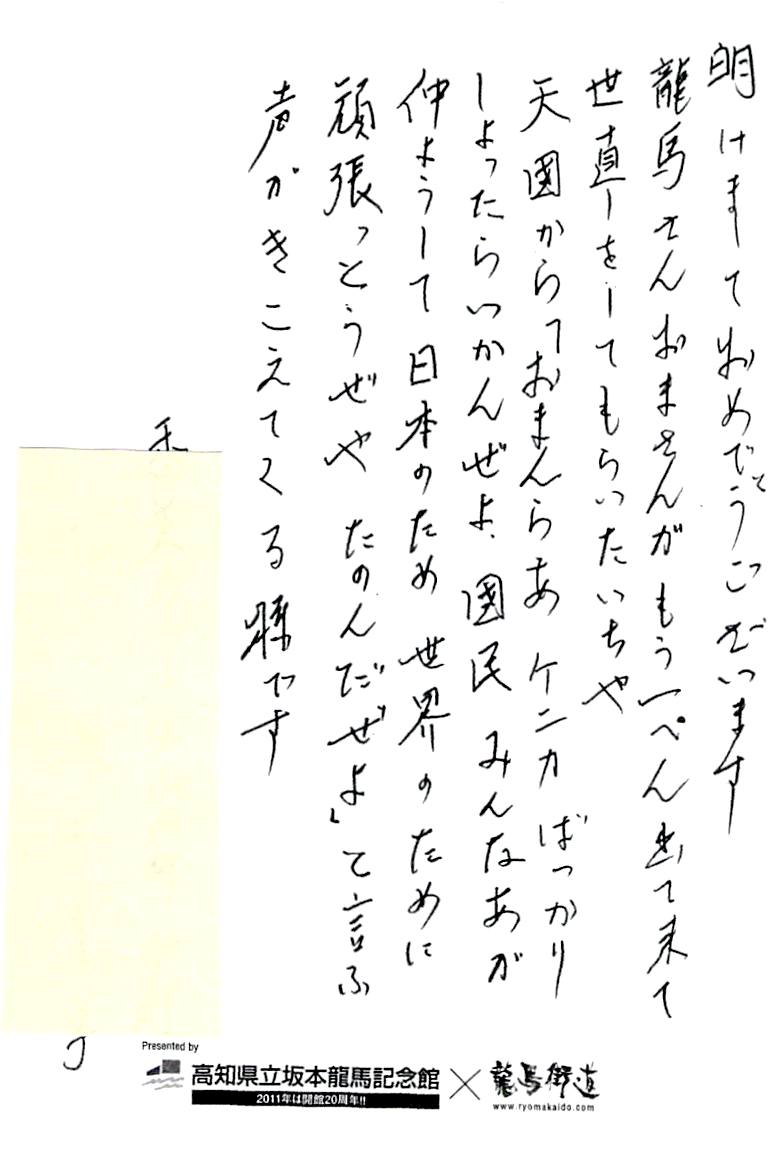 明けまして おめでとうございます
龍馬さん おまさんがもう一ぺん出て来て
世直しをしてもらいたいちや
天國から「おまんらあ ケンカ ばっかり
しよったらいかんぜよ、國民 みんなあが
仲ようして 日本のため 世界のために
頑張っとうぜや たのんだぜよ」と言ふ
声がきこえてくる様です
Presented by
高知県立坂本龍馬記念館 × 龍馬街道
2011年は開館20周年!!
www.ryomakaido.com